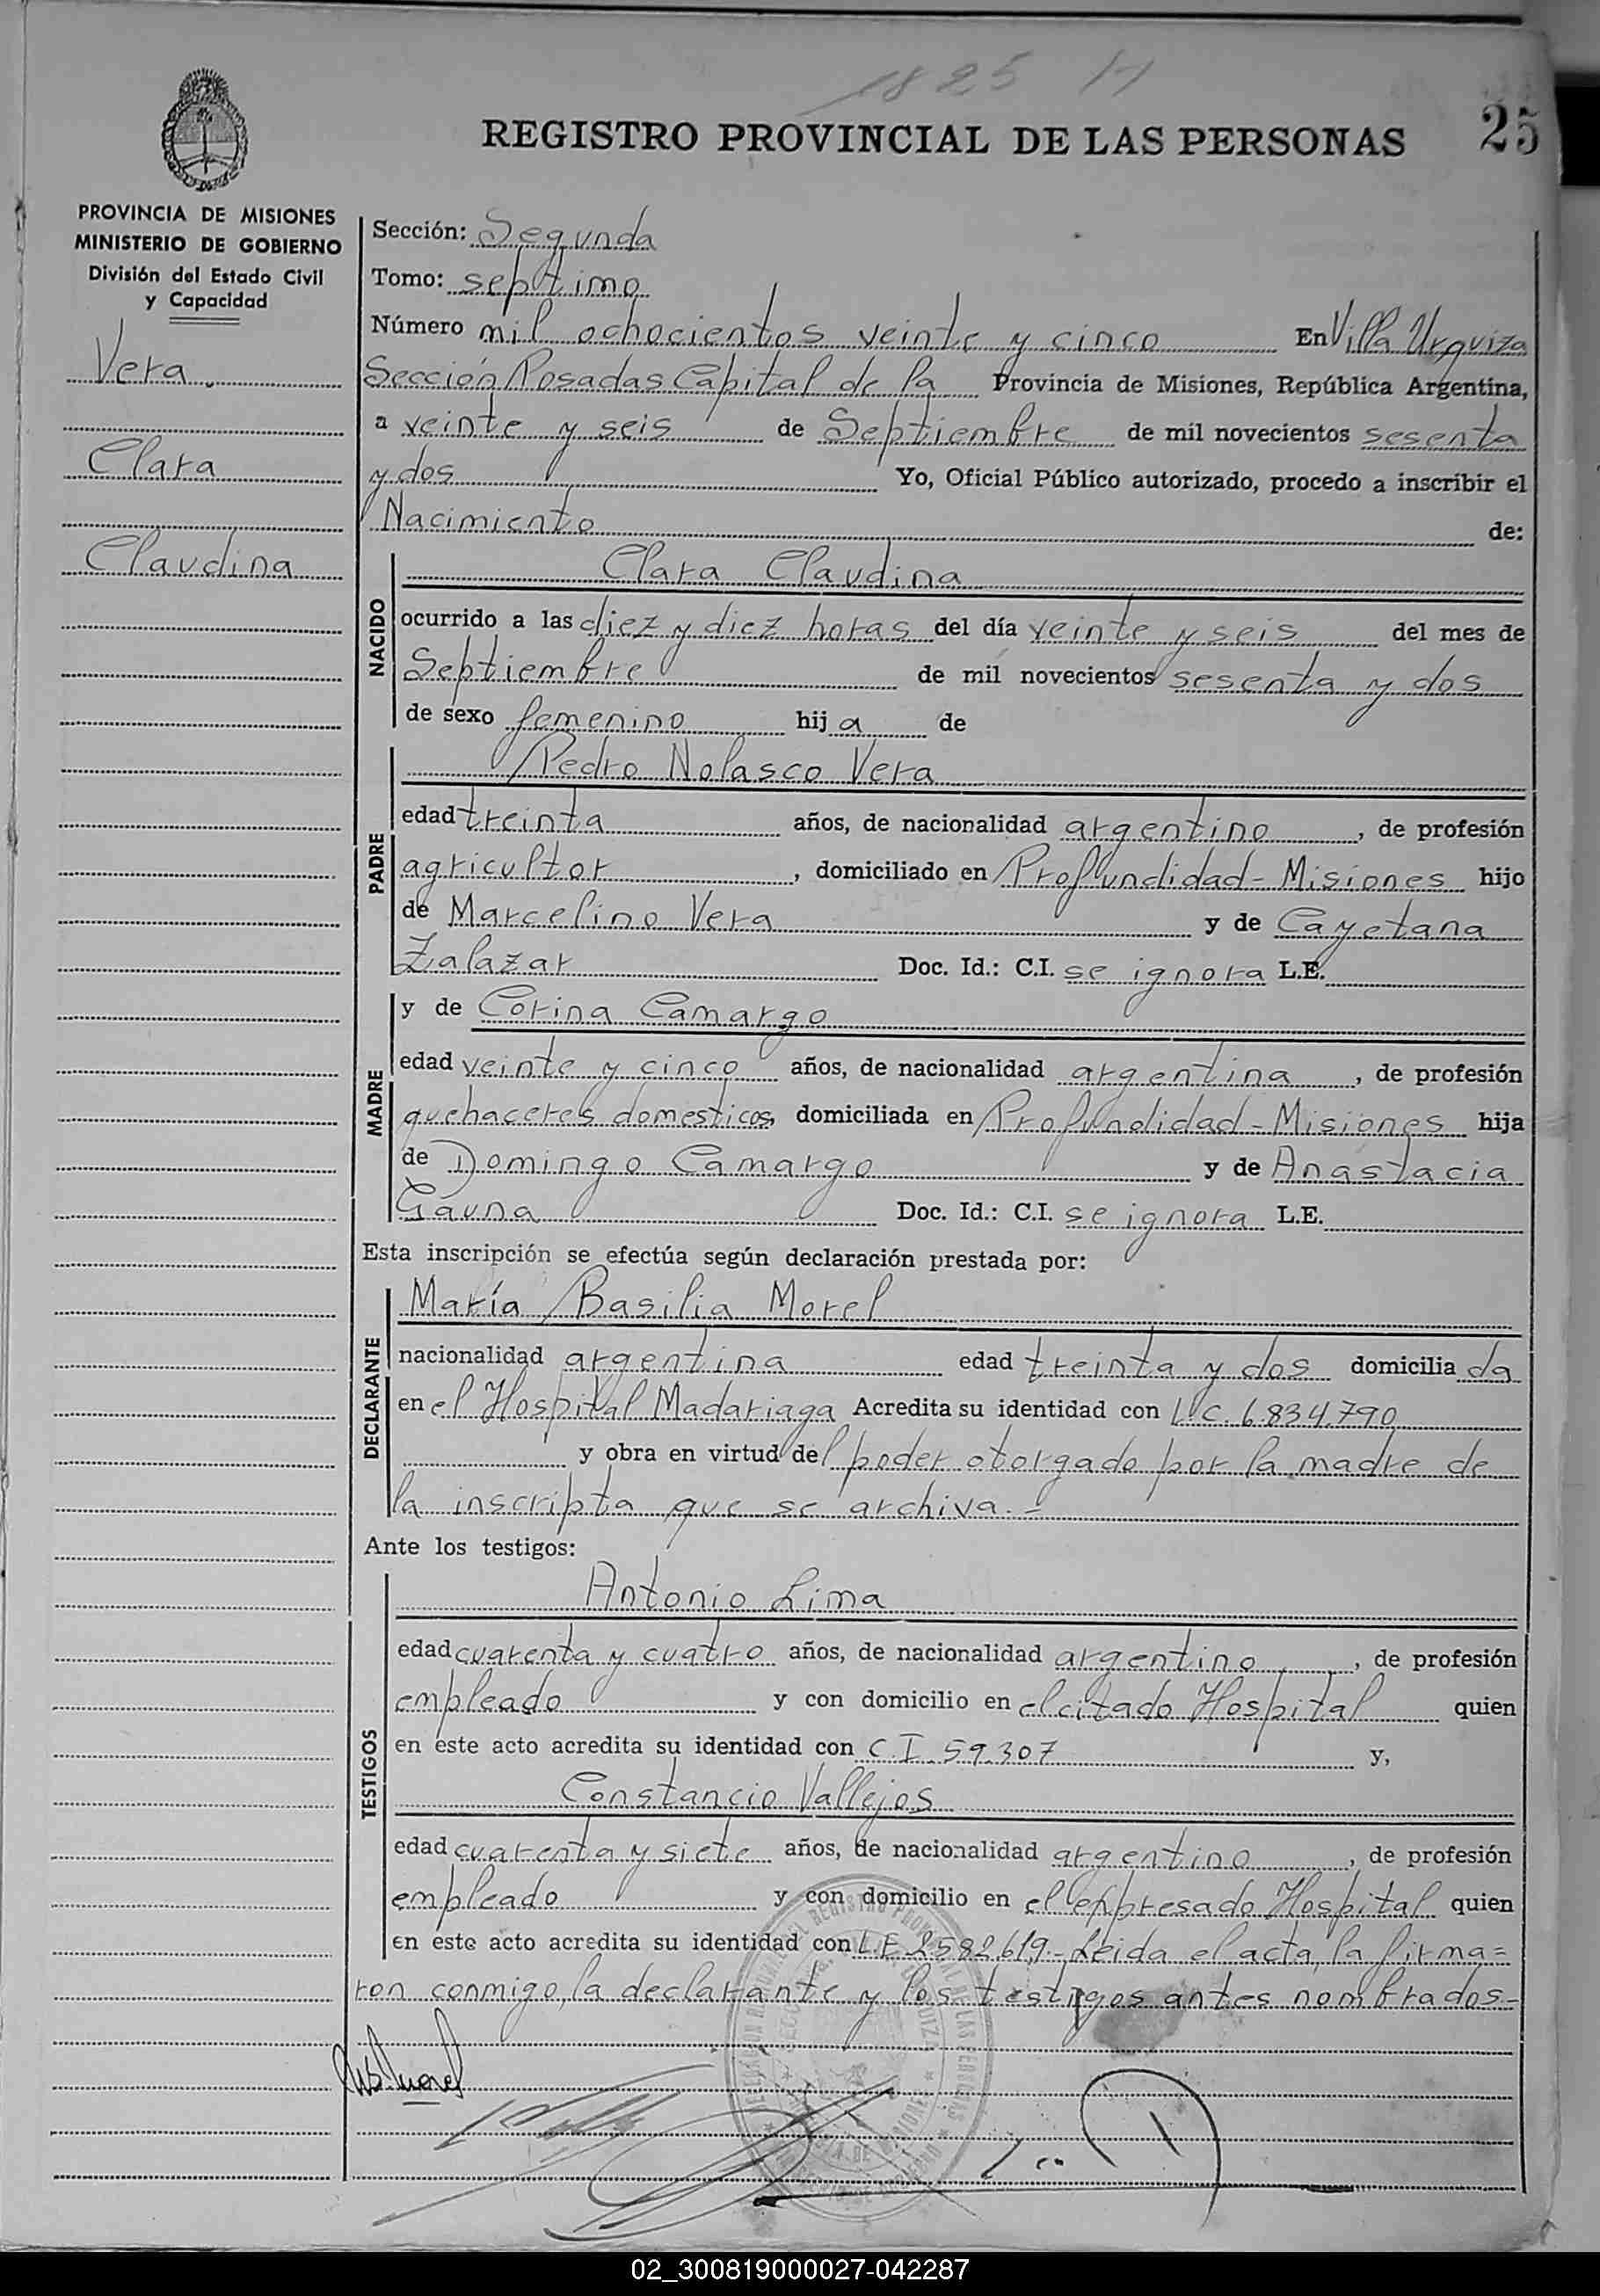 1825 H
25
REGISTRO PROVINCIAL DE LAS PERSONAS
PROVINCIA DE MISIONES
MINISTERIO DE GOBIERNO
División del Estado Civil
y Capacidad
Vera
Clara
Claudina
Sección: Segunda
Tomo: septimo
Número mil ochocientos veinte y cinco En Villa Urquiza
Sección Posadas Capital de la Provincia de Misiones, República Argentina,
a veinte y seis de Septiembre de mil novecientos sesenta
y dos Yo, Oficial Público autorizado, procedo a inscribir el
Nacimiento de:
NACIDO
Clara Claudina
ocurrido a las diez y diez horas del día veinte y seis del mes de
Septiembre de mil novecientos sesenta y dos
de sexo femenino hija de
PADRE
Pedro Nolasco Vera
edad treinta años, de nacionalidad argentino, de profesión
agricultor, domiciliado en Profundidad - Misiones hijo
de Marcelino Vera y de Cayetana
Zalazar Doc. Id.: C.I. se ignora L.E.
MADRE
y de Corina Camargo
edad veinte y cinco años, de nacionalidad argentina, de profesión
quehaceres domesticos, domiciliada en Profundidad - Misiones hija
de Domingo Camargo y de Anastacia
Gauna Doc. Id.: C.I. se ignora L.E.
Esta inscripción se efectúa según declaración prestada por:
DECLARANTE
María Basilia Morel
nacionalidad argentina edad treinta y dos domiciliada
en el Hospital Madariaga Acredita su identidad con L.C. 6.834.790
y obra en virtud del poder otorgado por la madre de
la inscripta que se archiva.-
Ante los testigos:
TESTIGOS
Antonio Lima
edad cuarenta y cuatro años, de nacionalidad argentino, de profesión
empleado y con domicilio en el citado Hospital quien
en este acto acredita su identidad con C.I. 59.307 y,
Constancio Vallejos
edad cuarenta y siete años, de nacionalidad argentino, de profesión
empleado y con domicilio en el expresado Hospital quien
en este acto acredita su identidad con L.E 2582619.- Leida el acta, la firma=
ron conmigo, la declarante y los testigos antes nombrados.-
02_300819000027-042287